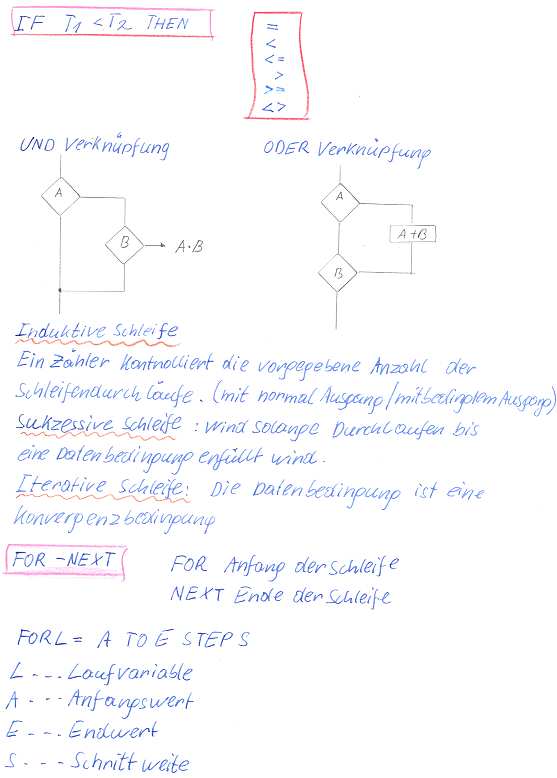 IF T1 < T2 THEN
=
<
<=
>
>=
<>
UND Verknüpfung
ODER Verknüpfung
A
B
A·B
A
A+B
B
Induktive Schleife
Ein Zähler kontrolliert die vorgegebene Anzahl der
Schleifendurchläufe. (mit normal Ausgang/mit bedingtem Ausgang)
Sukzessive Schleife: wird solange Durchlaufen bis
eine Datenbedingung erfüllt wird.
Iterative Schleife: Die Datenbedingung ist eine
Konvergenzbedingung
FOR-NEXT
FOR Anfang der Schleife
NEXT Ende der Schleife
FOR L = A TO E STEP S
L ... Laufvariable
A ... Anfangswert
E ... Endwert
S ... Schrittweite